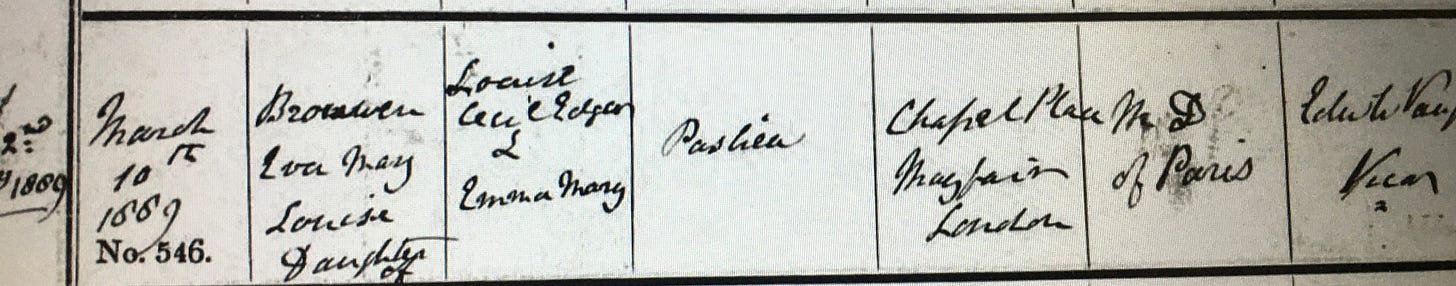 2nd
1889
March
10th
1889
No. 546.
Bronwen
Eva Mary
Louise
Daughter
of
Louise
Cecil Edgar
&
Emma Mary
Chapel Place
Mayfair
London
M. D
of Paris
Vicar